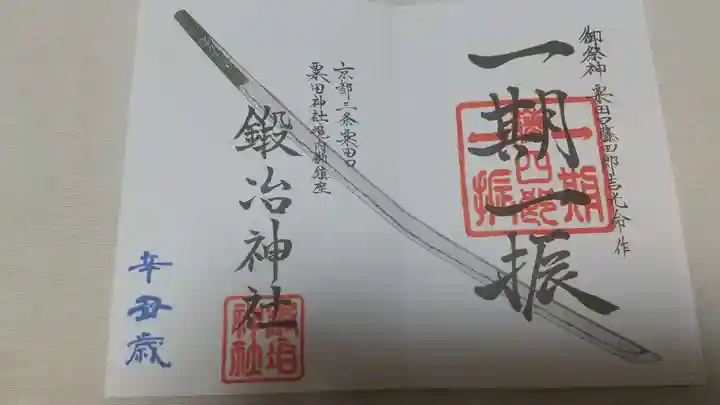 御祭神 粟田口藤四郎吉光命 作
一期一振
一期
藤四郎
一振
京都三条粟田口
粟田神社境内御鎮座
鍛冶神社
辛丑歳